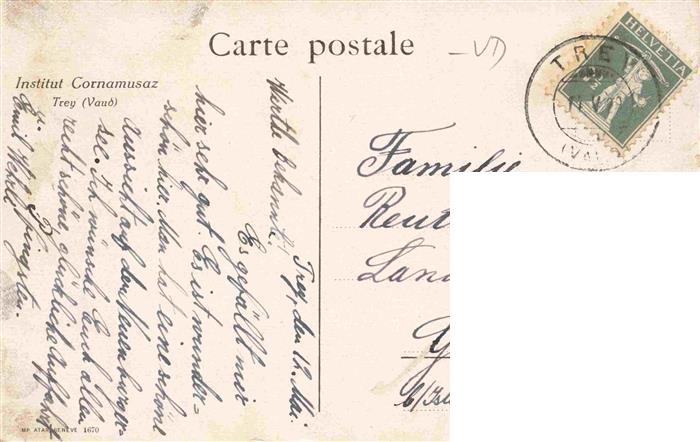 Carte postale
VD
Institut Cornamusaz
Trey (Vaud)
HELVETIA
TREY
(VAUD)
Trey, den 19. Mai.
Werte Bekannte!
Es gefällt mir
hier sehr gut. Es ist wunder-
schön hier. Man hat eine schöne
Aussicht auf den Neuenburger-
see. Ich wünsche Euch allen
recht schöne, glückliche Auffahrt
u. Pfingsten.
Emil
Familie
Reut
Land
G
b/Isl
MP. ATAR, GENÈVE 1670